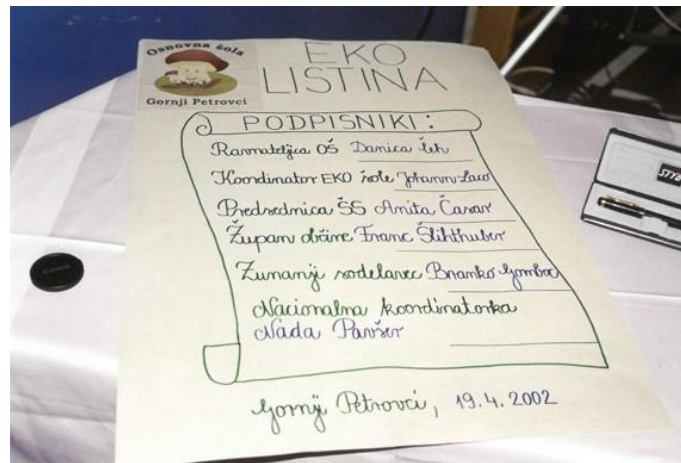 Osnovna šola
Gornji Petrovci
EKO
LISTINA
PODPISNIKI:
Ravnateljica OŠ Danica Leh
Koordinator EKO šole Johann Laco
Predsednica ŠS Anita Časar
Župan občine Franc Šlihthuber
Zunanji sodelavec Branko Gomboc
Nacionalna koordinatorka
Nada Pavšer
Gornji Petrovci, 19.4.2002
Canon